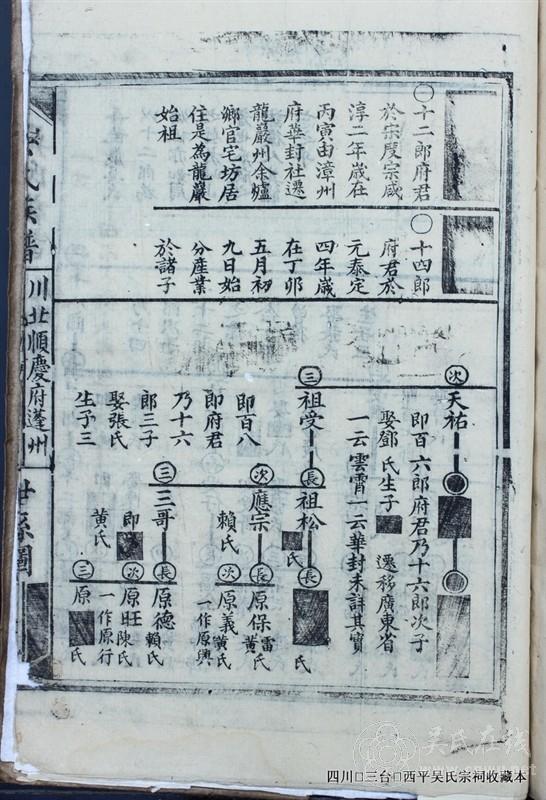 十二郎府君
於宋度宗咸
淳二年歲在
丙寅由漳州
府華封社遷
龍巖州余爐
鄉官宅坊居
住是為龍巖
始祖
十四郎
府君於
元泰定
四年歲
在丁卯
五月初
九日始
分產業
於諸子
次
天祐
即百六郎府君乃十六郎次子
娶鄧氏生子 遷移廣東省
一云雲霄一云華封未詳其實
三
祖受
即百八
郎府君
乃十六
郎三子
娶張氏
生子三
長
祖松
氏
長
氏
次
應宗
賴氏
長
原保
雷氏
黃氏
次
原義
黃氏
一作原興
三
三哥
即
黃氏
長
原德
賴氏
次
原旺
陳氏
一作原行
三
原
氏
氏族譜
川北順慶府蓬州
世系圖
吴氏在线
www.cnwu.net
四川□三台□西平吴氏宗祠收藏本